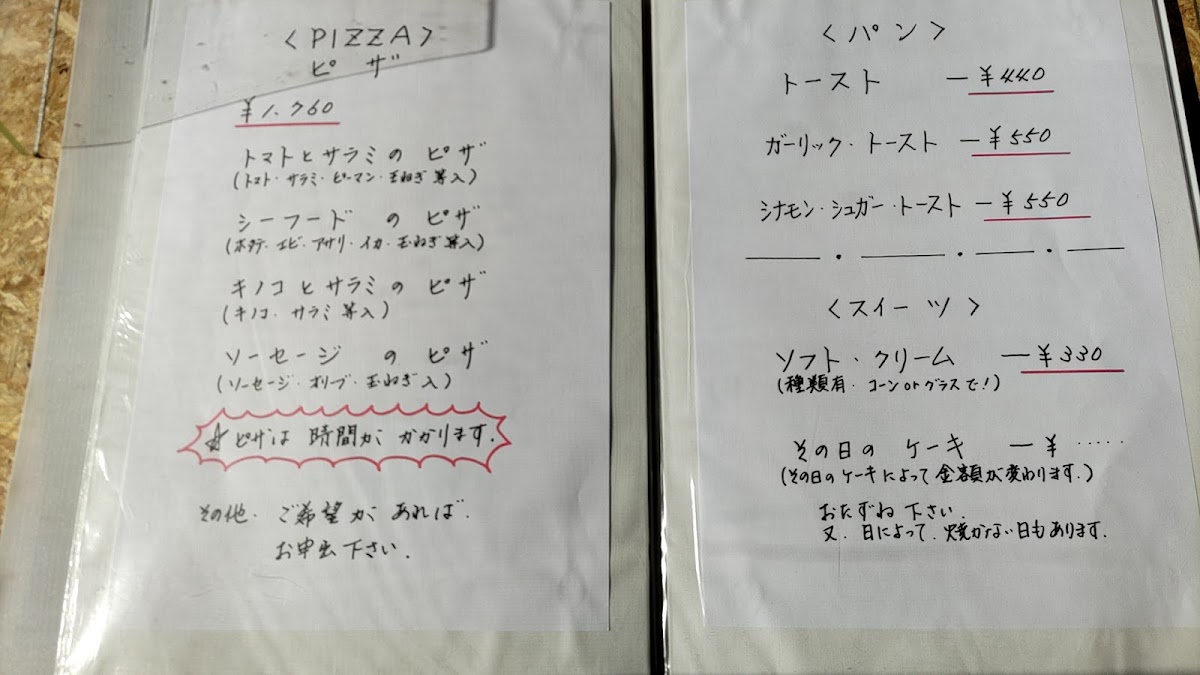 〈PIZZA〉
ピザ
¥1.760
トマトとサラミの ピザ
(トマト・サラミ・ピーマン・玉ねぎ等入)
シーフード の ピザ
(ホタテ・エビ・アサリ・イカ・玉ねぎ等入)
キノコとサラミの ピザ
(キノコ・サラミ等入)
ソーセージ の ピザ
(ソーセージ・オリーブ・玉ねぎ入)
☆ピザは 時間が かかります.
その他・ご希望が あれば.
お申出下さい.
〈パン〉
トースト ー¥440
ガーリック・トースト ー¥550
シナモン・シュガー・トーストー¥550
〈スイーツ〉
ソフト・クリーム ー¥330
(種類有・コーンorグラスで!)
その日の ケーキ ー¥‥‥‥
(その日のケーキによって金額が変わります.)
おたずね下さい.
又、日によって、焼かない日もあります.